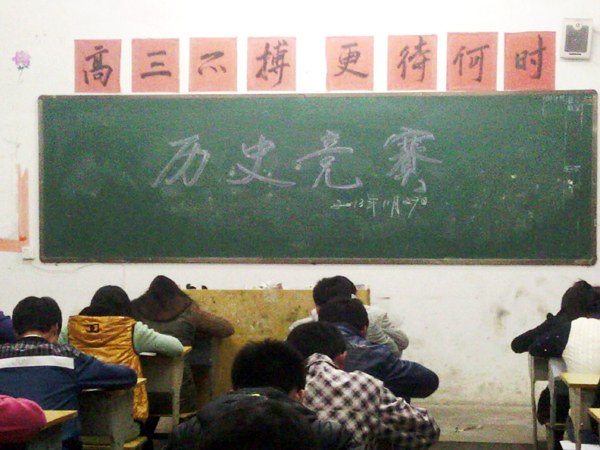 高三不搏 更待何时
历史竞赛
2013年11月27日